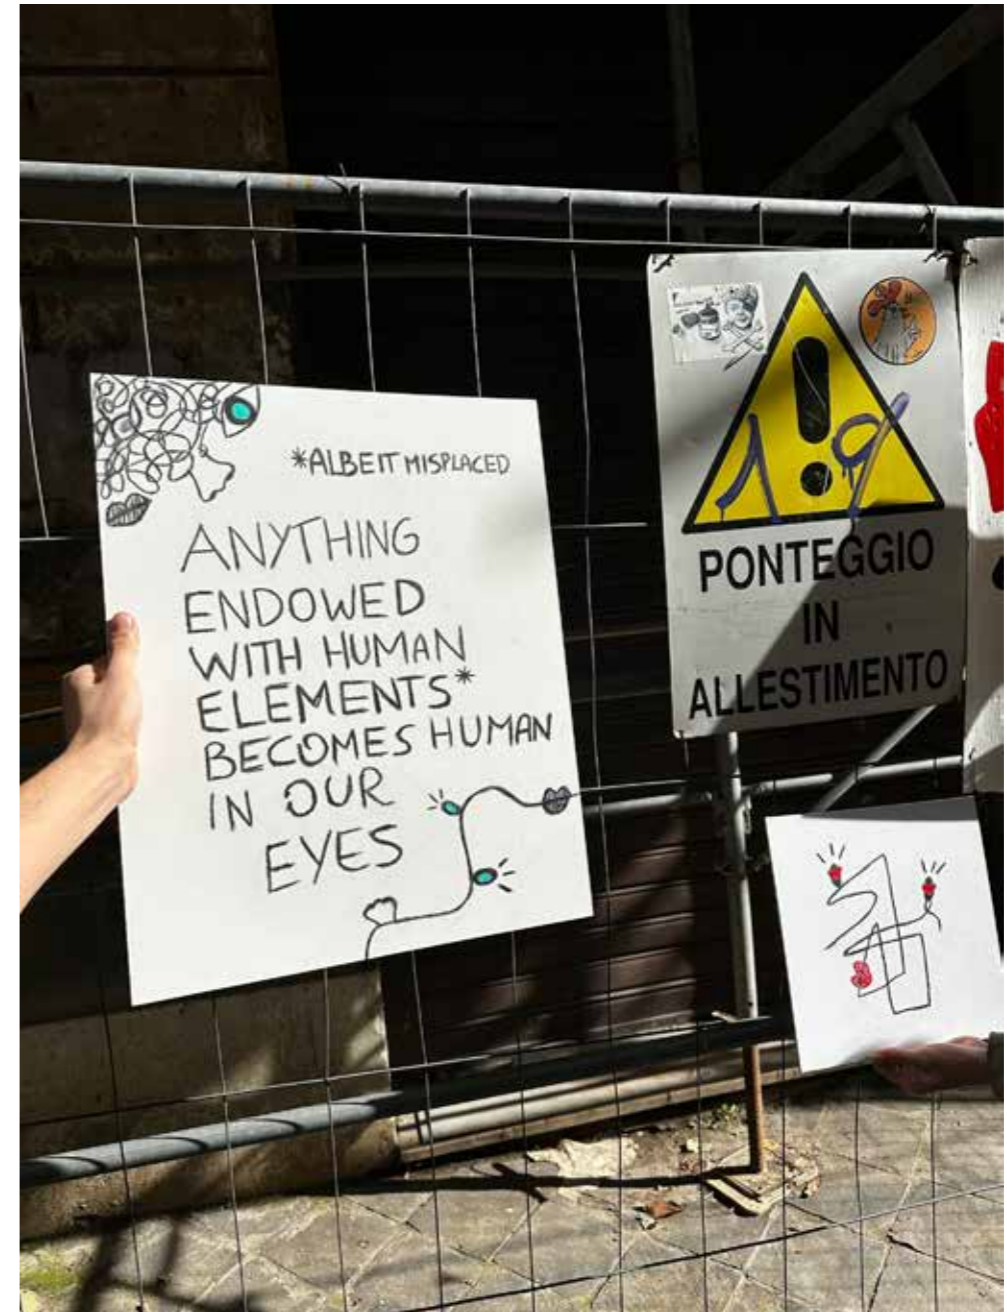 *ALBEIT MISPLACED
ANYTHING
ENDOWED
WITH HUMAN
ELEMENTS*
BECOMES HUMAN
IN OUR
EYES
19
PONTEGGIO
IN
ALLESTIMENTO